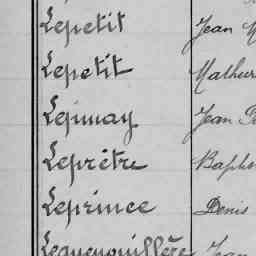 Lepetit Jean
Lepetit Mathur
Lepinay Jean
Leprêtre Bapt
Leprince Denis
Lequenouillère Jean